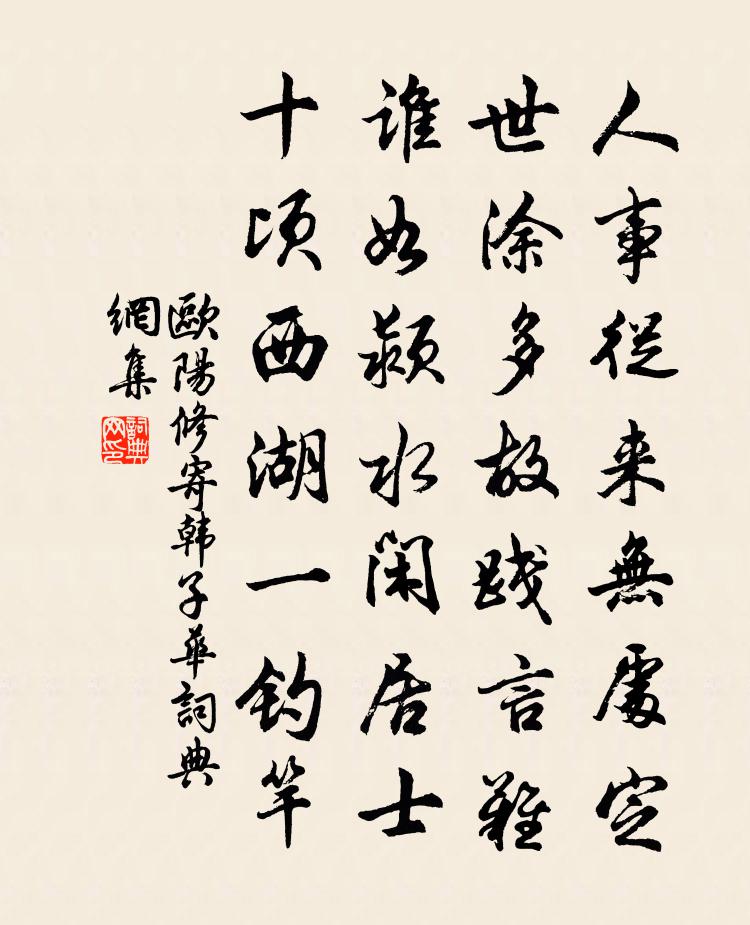 人事從来無處定
世涂多故踐言難
誰如潁水閑居士
十頃西湖一釣竿
歐陽修寄韩子華詞典
網集
詞典
网印